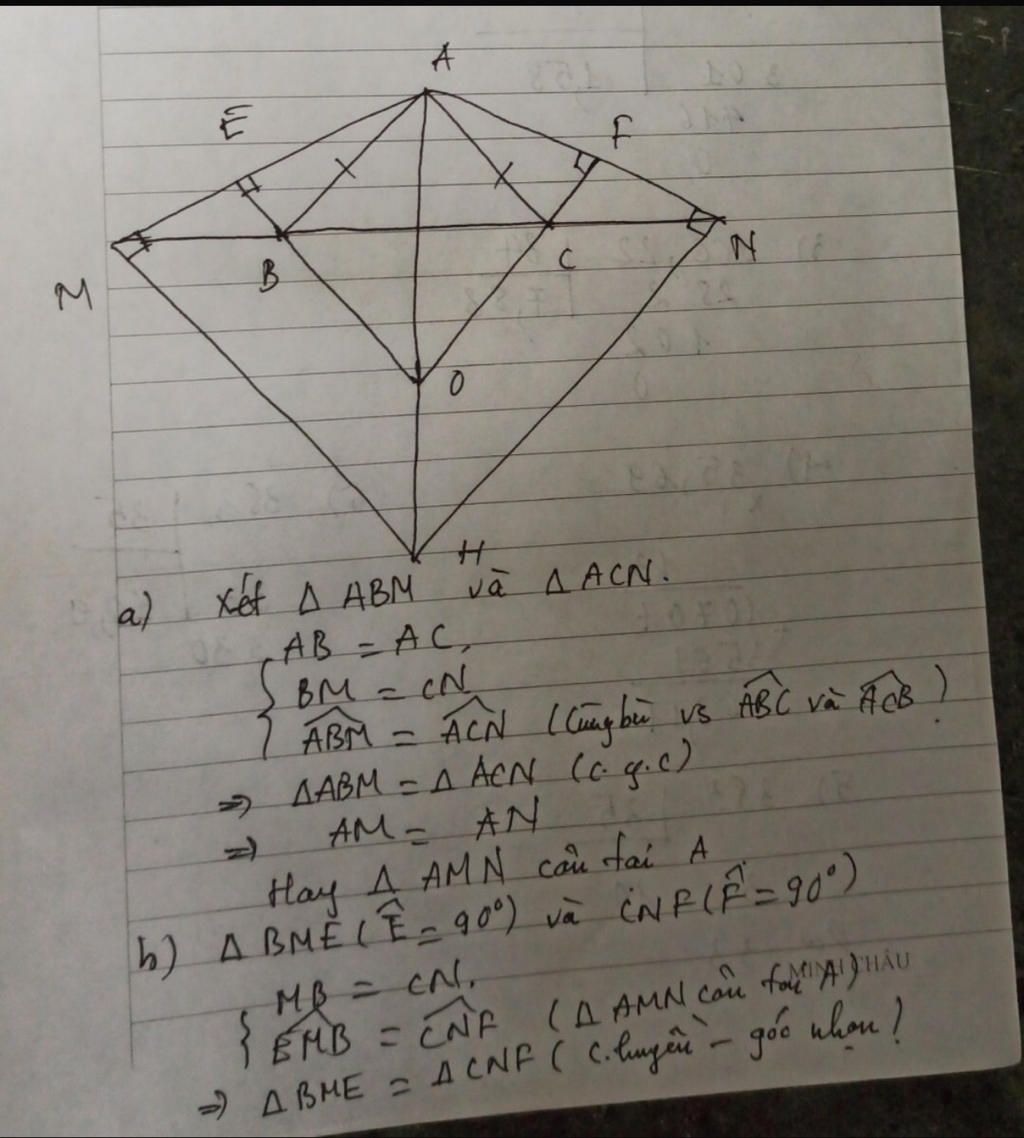 A
E
F
M
B
C
N
O
H
a) Xét Δ ABM và Δ ACN.
AB = AC,
BM = CN
ABM = ACN (Cùng bù vs ABC và ACB)
=> ΔABM = Δ ACN (c.g.c)
=> AM = AN
Hay Δ AMN cân tại A
b) Δ BME (Ê = 90°) và CNF (F̂ = 90°)
MB = CN,
EMB = CNF (Δ AMN cân tại A)
MINH CHÂU
=> ΔBME = ΔCNF (c.huyền - góc nhọn)